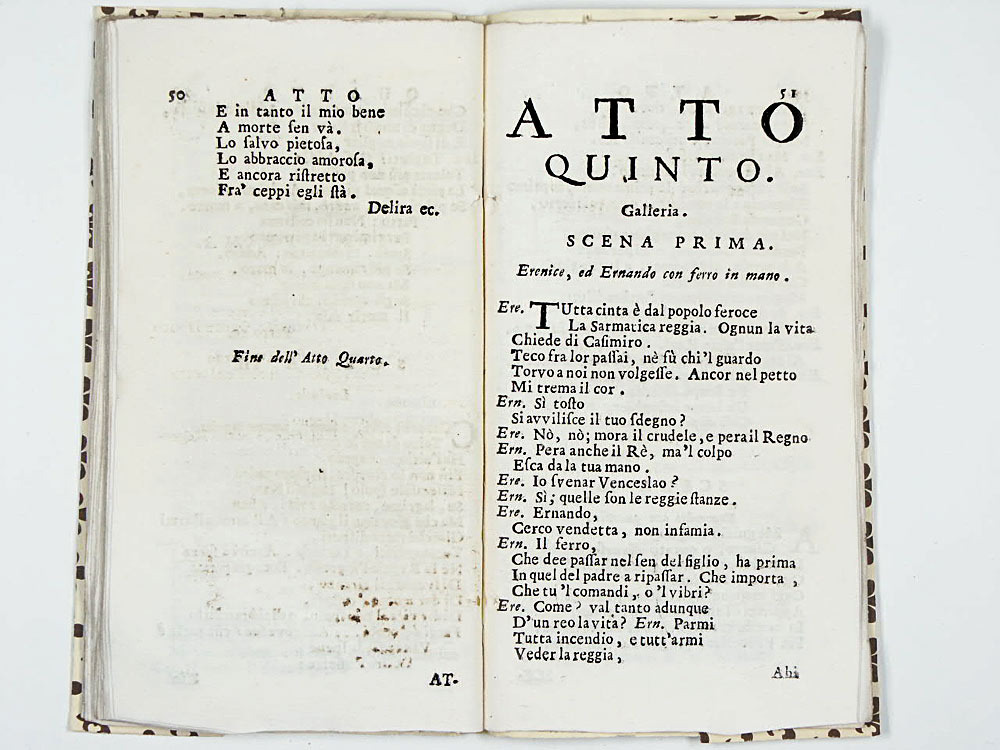 50 ATTO
E in tanto il mio bene
A morte ſen và.
Lo ſalvo pietoſa,
Lo abbraccio amoroſa,
E ancora riſtretto
Fra' ceppi egli ſtà.
Delira ec.
Fine dell' Atto Quarto.
AT-
51
ATTO
QUINTO.
Galleria.
SCENA PRIMA.
Erenice, ed Ernando con ferro in mano.
Ere. TUtta cinta è dal popolo feroce
La Sarmatica reggia. Ognun la vita
Chiede di Caſimiro.
Teco fra lor paſſai, nè fù chi 'l guardo
Torvo a noi non volgeſſe. Ancor nel petto
Mi trema il cor.
Ern. Sì toſto
Si avviliſce il tuo ſdegno?
Ere. Nò, nò; mora il crudele, e pera il Regno
Ern. Pera anche il Rè, ma'l colpo
Eſca da la tua mano.
Ere. Io ſvenar Venceslao?
Ern. Sì; quelle ſon le reggie ſtanze.
Ere. Ernando,
Cerco vendetta, non infamia.
Ern. Il ferro,
Che dee paſſar nel ſen del figlio, ha prima
In quel del padre a ripaſſar. Che importa,
Che tu 'l comandi, o 'l vibri?
Ere. Come? val tanto adunque
D'un reo la vita? Ern. Parmi
Tutta incendio, e tutt'armi
Veder la reggia,
Ahi